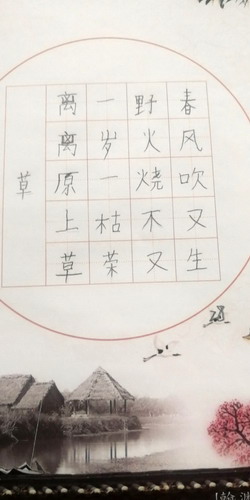 草
离离原上草
一岁一枯荣
野火烧不又
春风吹又生